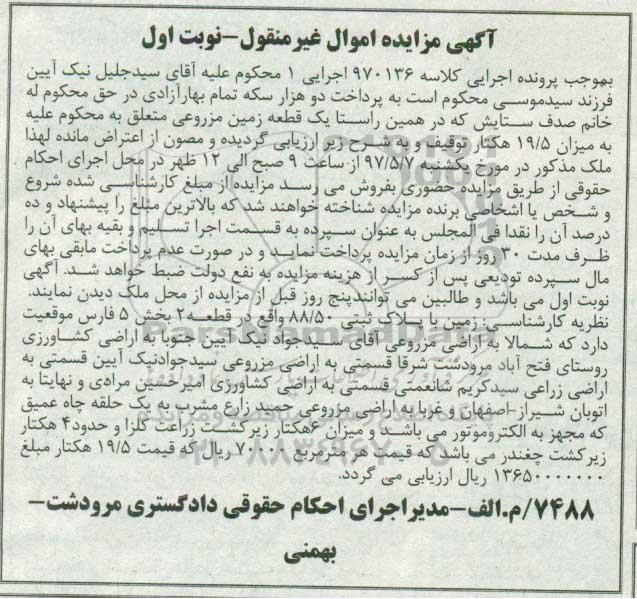 آگهی مزایده اموال غیرمنقول-نوبت اول
بموجب پرونده اجرایی کلاسه ۹۷۰۱۳۶ اجرایی ۱ محکوم علیه آقای سیدجلیل نیک آیین
فرزند سیدموسی محکوم است به پرداخت دو هزار سکه تمام بهارآزادی در حق محکوم له
خانم صدف ستایش که در همین راستا یک قطعه زمین مزروعی متعلق به محکوم علیه
به میزان ۱۹/۵ هکتار توقیف و به شرح زیر ارزیابی گردیده و مصون از اعتراض مانده لهذا
ملک مذکور در مورخ یکشنبه ۹۷/۵/۷ از ساعت ۹ صبح الی ۱۲ ظهر در محل اجرای احکام
حقوقی از طریق مزایده حضوری بفروش می رسد مزایده از مبلغ کارشناسی شده شروع
و شخص یا اشخاصی برنده مزایده شناخته خواهند شد که بالاترین مبلغ را پیشنهاد و ده
درصد آن را نقدا فی المجلس به عنوان سپرده به قسمت اجرا تسلیم و بقیه بهای آن را
ظرف مدت ۳۰ روز از زمان مزایده پرداخت نماید و در صورت عدم پرداخت مابقی بهای
مال سپرده تودیعی پس از کسر از هزینه مزایده به نفع دولت ضبط خواهد شد. آگهی
نوبت اول می باشد و طالبین می توانندپنج روز قبل از مزایده از محل ملک دیدن نمایند.
نظریه کارشناسی: زمین با پلاک ثبتی ۸۸/۵۰ واقع در قطعه ۲ بخش ۵ فارس موقعیت
دارد که شمالا به اراضی مزروعی آقای سیدجواد نیک آیین جنوبا به اراضی کشاورزی
روستای فتح آباد مرودشت شرقا قسمتی به اراضی مزروعی سیدجوادنیک آیین قسمتی به
اراضی زراعی سیدکریم شانعمتی قسمتی به اراضی کشاورزی امیرحسین مرادی و نهایتا به
اتوبان شیراز-اصفهان و غربا به اراضی مزروعی حمید زارع مشرب به یک حلقه چاه عمیق
که مجهز به الکتروموتور می باشد و میزان ۶هکتار زیرکشت زراعت کلزا و حدود۴ هکتار
زیرکشت چغندر می باشد که قیمت هر مترمربع ۷۰۰۰۰ ریال که قیمت ۱۹/۵ هکتار مبلغ
۱۳۶۵۰۰۰۰۰۰۰ ریال ارزیابی می گردد.
۷۴۸۸/م.الف-مدیراجرای احکام حقوقی دادگستری مرودشت-
بهمنی
ParsNamadData